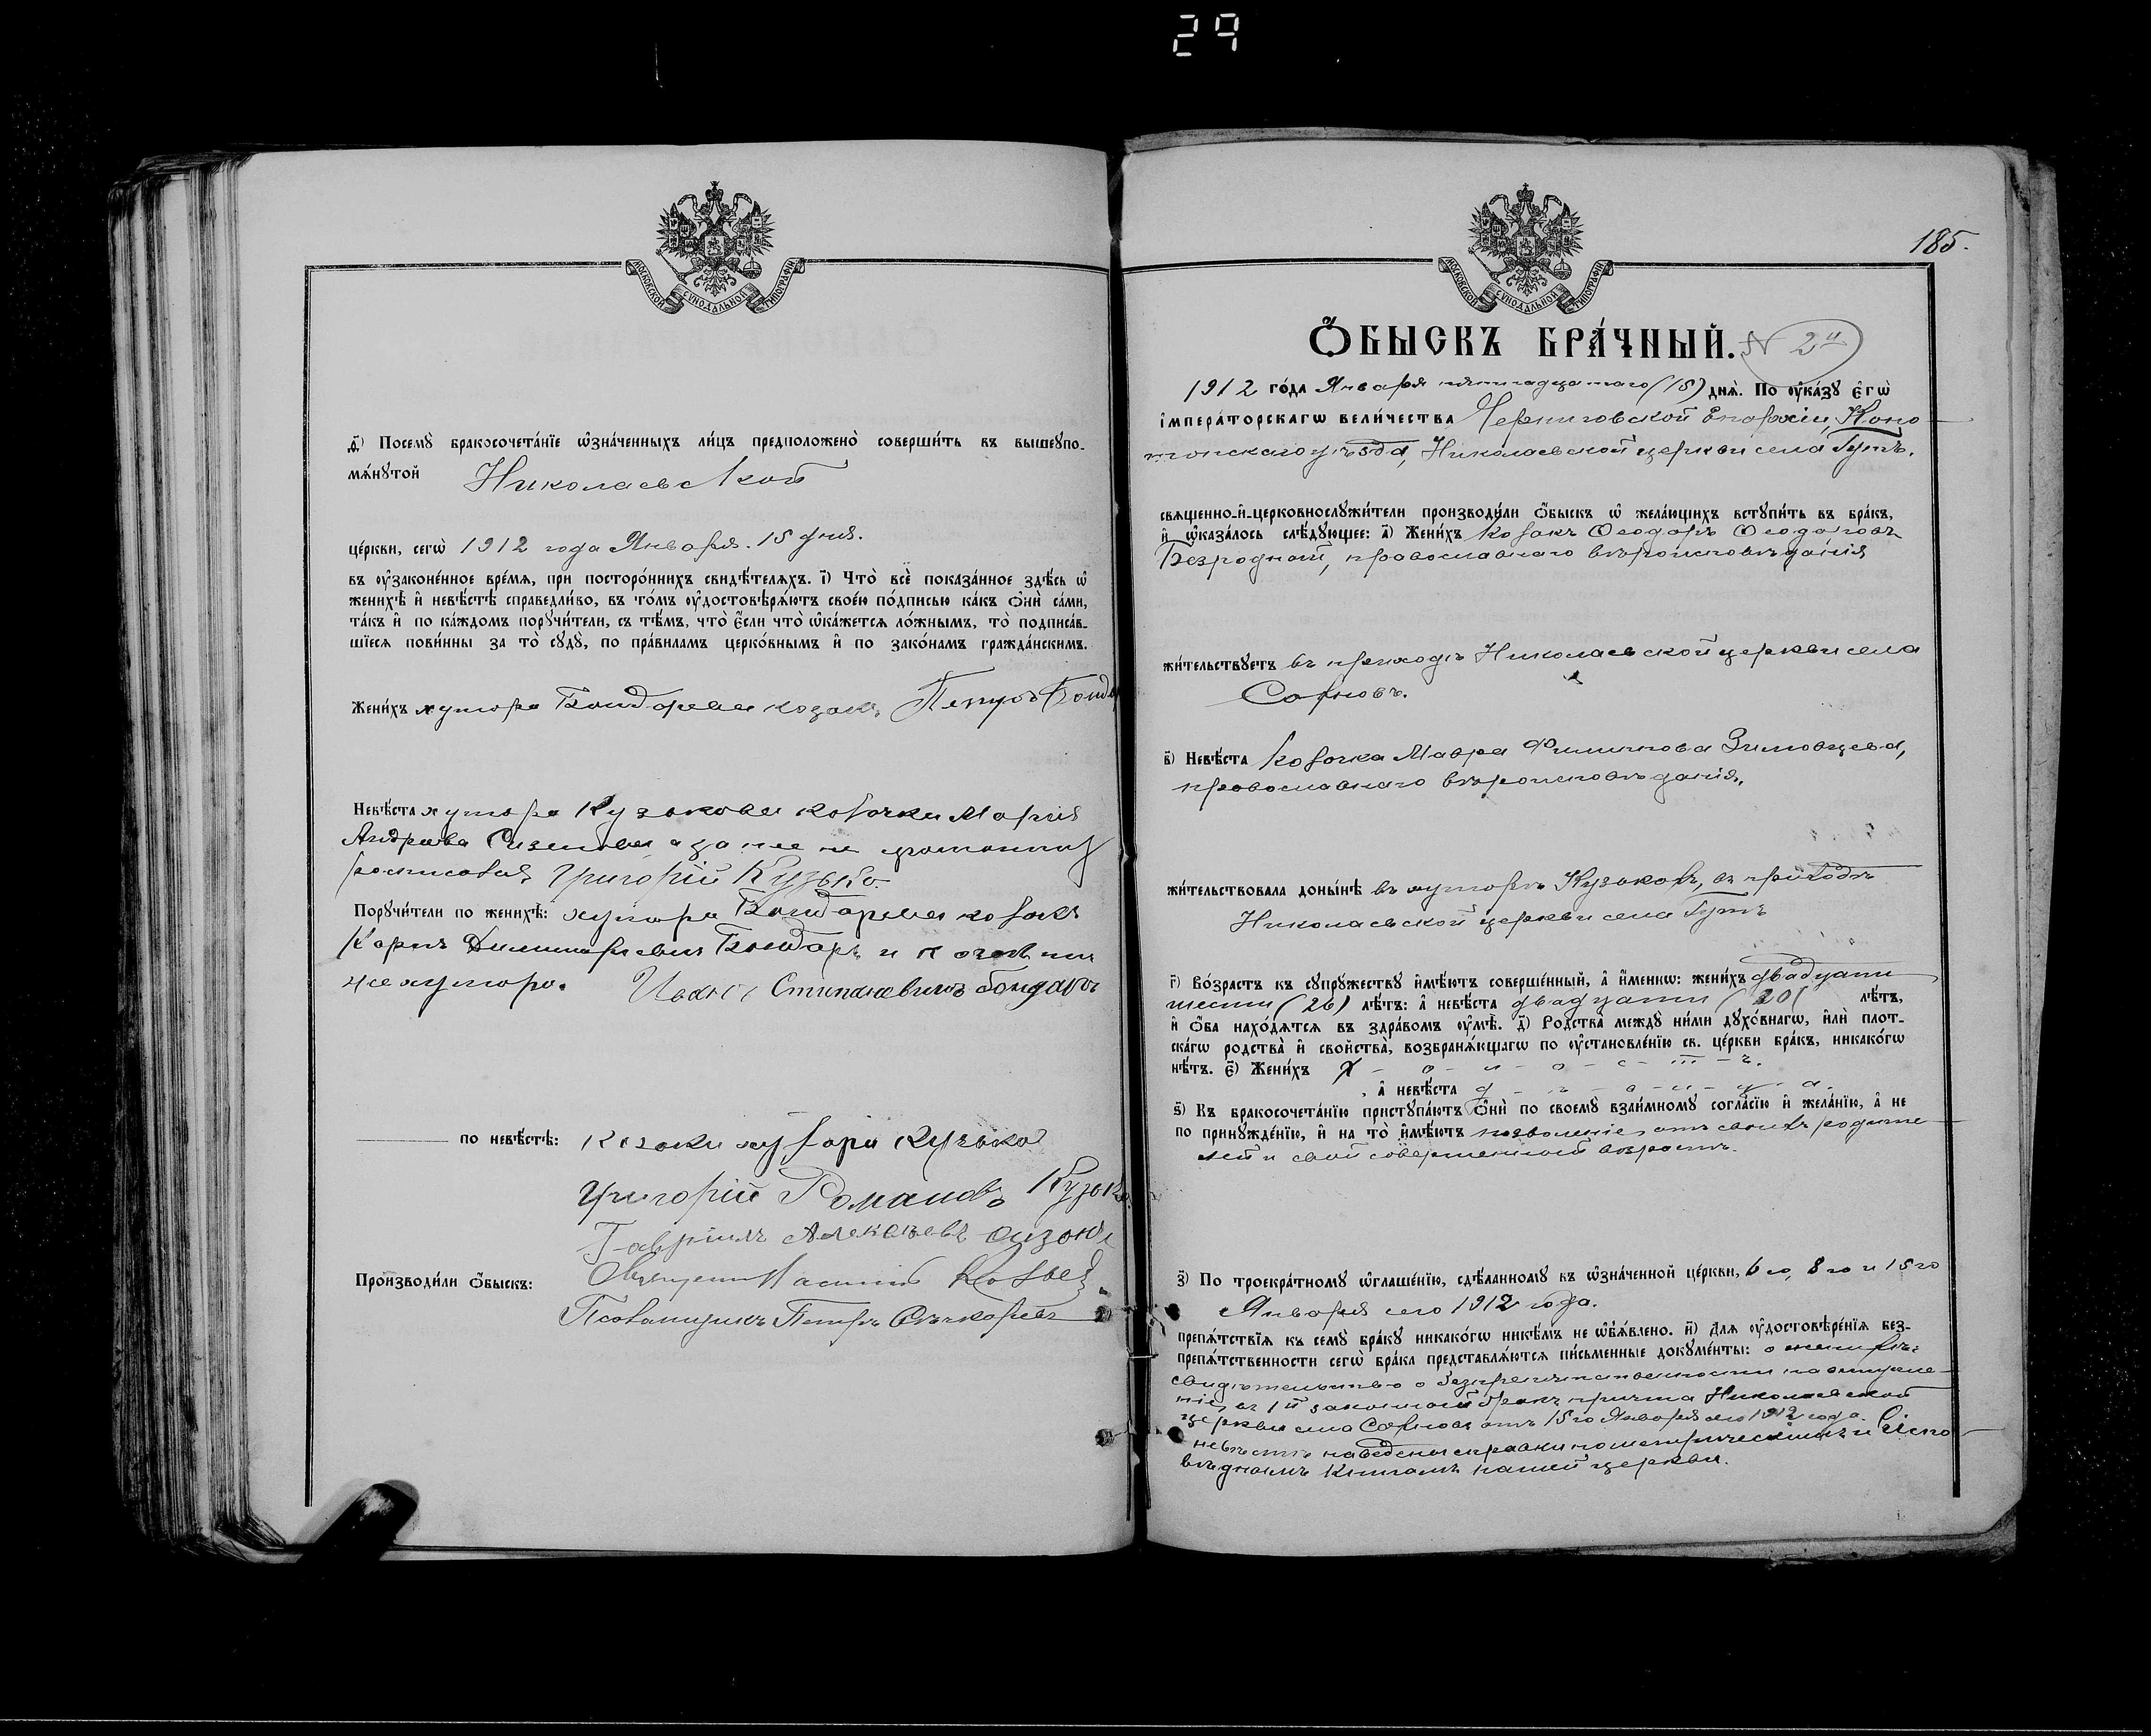 29
МОСКОВСКОЙ СѴНОДАЛЬНОЙ ТИПОГРАФІИ
д҃) Посемꙋ̀ бракосочета́нїе ѡ҆зна́ченныхъ ли́цъ предположено̀ соверши́ть въ вышеꙋпо-
мѧ́нꙋтой Николаевской
це́ркви, сегѡ̀ 1912 года Января. 15 дня.
въ ᲂу҆зако́ненное вре́мѧ, при посторо́ннихъ свидѣ́телѧхъ. і҃) Что̀ всѐ пока́занное здѣ́сь ѡ҆
женихѣ̀ и҆ невѣ́стѣ справедли́во, въ то́мъ ᲂу҆достовѣрѧ́ютъ свое́ю по́дписью ка́къ ѻ҆нѝ са́ми,
та́къ и҆ по ка́ждомъ порꙋчи́тели, съ тѣ́мъ, что̀ є҆́сли что̀ ѡ҆ка́жетсѧ ло́жнымъ, то̀ подписа́в-
шїесѧ пови́нны за то̀ сꙋдꙋ̀, по пра́виламъ церко́внымъ и҆ по зако́намъ гражда́нскимъ.
Жени́хъ хутора Бондарева козакъ Петръ Бонда
Невѣ́ста хутора Кузькова козачка Марія
Андреева а за нее не грамотную
росписался Григорій Кузько.
Порꙋчи́тели по женихѣ̀: хутора Бондарева козакъ
Карпъ Димитріевичъ Бондарь и
же хутора. Иванъ Стипановичъ Бондарь
по невѣ́стѣ: козаки хутора Кузько
Григорій Романовъ Кузько
Гавріилъ Алексѣевъ Сизонъ
Производи́ли ѻ҆́быскъ: Священникъ
Псаломщикъ Петръ
МОСКОВСКОЙ СѴНОДАЛЬНОЙ ТИПОГРАФІИ
185.
Ѻ҆́БЫСКЪ БРА́ЧНЫЙ. N 2й
1912 го́да Января пятнадцатаго (15) днѧ̀. По ᲂу҆ка́зꙋ є҆гѡ̀
и҆мпера́торскагѡ вели́чества Черниговской Епархіи, Коно
топскаго уѣзда, Николаевской церкви села Гутъ.
свѧщенно-и҆-церковнослꙋжи́тели производи́ли ѻ҆́быскъ ѡ҆ жела́ющихъ встꙋпи́ть въ бра́къ,
и҆ ѡ҆каза́лось слѣ́дꙋющее: а҃) Жени́хъ козакъ Ѳеодоръ Ѳеодоровъ
Безродный, православнаго вѣроисповѣданія
жи́тельствꙋетъ въ приходѣ Николаевской церкви села
Сосновъ.
в҃) Невѣ́ста козачка Мавра Филиппова Зиновцева,
православнаго вѣроисповѣданія.
жи́тельствовала доны́нѣ въ хуторѣ Кузьковѣ, въ приходѣ
Николаевской церкви села Гутъ
г҃) Во́зрастъ къ сꙋпрꙋ́жествꙋ и҆мѣ́ютъ соверше́нный, а҆ и҆́меннѡ: жени́хъ двадцати
шести (26) лѣ́тъ: а҆ невѣ́ста двадцати (20) лѣ́тъ,
и҆ ѻ҆́ба нахо́дѧтсѧ въ здра́вомъ ᲂу҆мѣ̀. д҃) Родства̀ междꙋ̀ ни́ми дꙋхо́внагѡ, и҆лѝ плот-
ска́гѡ родства̀ и҆ сво́йства, возбранѧ́ющагѡ по ᲂу҆становле́нїю св. це́ркви бра́къ, никако́гѡ
нѣ́тъ. є҃) Жени́хъ х - о - л - о - с - т - ъ.
, а҆ невѣ́ста д - ѣ - в - и - ц - а.
ѕ҃) Къ бракосочета́нїю пристꙋпа́ютъ ѻ҆нѝ по своемꙋ̀ взаи́мномꙋ согла́сїю и҆ жела́нїю, а҆ не
по принꙋжде́нїю, и҆ на то̀ и҆мѣ́ютъ позволеніе отъ своихъ родите
лей и свой совершенный возрастъ.
з҃) По троекра́тномꙋ ѡ҆глаше́нїю, сдѣ́ланномꙋ въ ѡ҆зна́ченной це́ркви, 6го, 8го и 15го
Января сего 1912 года.
препѧ́тствїѧ къ семꙋ̀ бра́кꙋ никако́гѡ никѣ́мъ не ѡ҆б̾ѧ́влено. и҃) Для ᲂу҆достовѣре́нїѧ без-
препѧ́тственности сегѡ̀ бра́ка представлѧ́ютсѧ пи́сьменные докꙋме́нты: о женихѣ:
свидѣтельство о безпрепятственности на вступле
ніе въ 1й законный бракъ причта Николаевской
церкви села Сосновъ отъ 15го Января сего 1912 года. О
невѣстѣ наведены справки по метрическимъ и испо
вѣднымъ книгамъ нашей церкви.